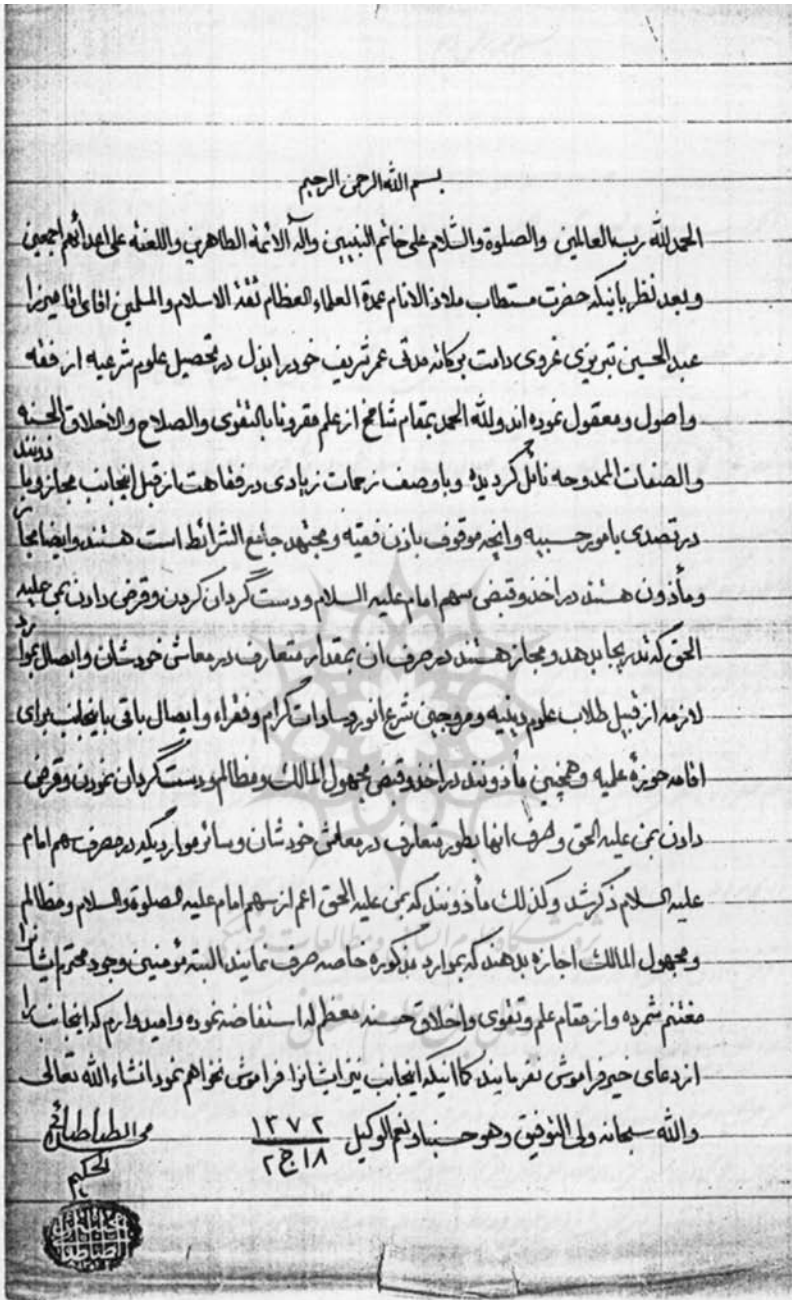 بسم الله الرحمن الرحیم
الحمد لله رب العالمین والصلوة والسّلام علی خاتم النبیین وآله الائمه الطاهرین واللعنه علی اعدائهم اجمعین
وبعد نظر باینکه حضرت مستطاب ملاذ الانام عمدة العلماء العظام ثقة الاسلام والمسلمین اقای اقا میرزا
عبدالحسین تبریزی غروی دامت برکاته مدتی عمر شریف خود را بذل در تحصیل علوم شرعیه از فقه
واصول ومعقول نموده اند ولله الحمد بمقام شامخ از علم مقرونا بالتقوی والصلاح والاخلاق الحسنه
والصفات الممدوحه نائل گردیده وباوصف زحمات زیادی در فقاهت از قبل اینجانب مجاز وماذونند
در تصدی بامور حسبیه وانچه موقوف باذن فقیه ومجتهد جامع الشرائط است هستند وایضا مجاز
ومأذون هستند در اخذ وقبض سهم امام علیه السلام ودست گردان کردن وقرض دادن بمن علیه
الحق که تدریجا بدهد ومجاز هستند در صرف ان بمقدار متعارف در معاش خودشان وایصال بموارد
لازمه از قبیل طلاب علوم دینیه ومروجین شرع انور وسادات گرام وفقراء وایصال باقی باینجانب برای
اقامه حوزهٔ علمیه وهمچنین مأذونند در اخذ وقبض مجهول المالك ومظالم ودست گردان نمودن وقرض
دادن بمن علیه الحق وصرف انها بطور متعارف در معاش خودشان وسائر موارد یکه در مصرف سهم امام
علیه السلام ذکر شد وکذلك مأذونند که بمن علیه الحق اعم از سهم امام علیه الصلوة والسلام ومظالم
ومجهول المالك اجازه بدهند که بموارد مذکوره خاصه صرف نمایند البته مؤمنین وجود محترم ایشانرا
مغتنم شمرده واز مقام علم وتقوی واخلاق حسنه معظم له استفاضه نموده وامیدوارم که اینجانب را
از دعای خیر فراموش نفرمایند کما اینکه اینجانب نیز ایشانرا فراموش نخواهم نمود انشاء الله تعالی
والله سبحانه ولی التوفیق وهو حسبنا ونعم الوکیل ١٣٧٢
١٨ ج ٢
محسن الطباطبائی
الحکیم